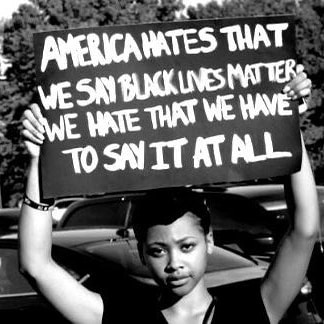 AMERICA HATES THAT
WE SAY BLACK LIVES MATTER
WE HATE THAT WE HAVE
TO SAY IT AT ALL